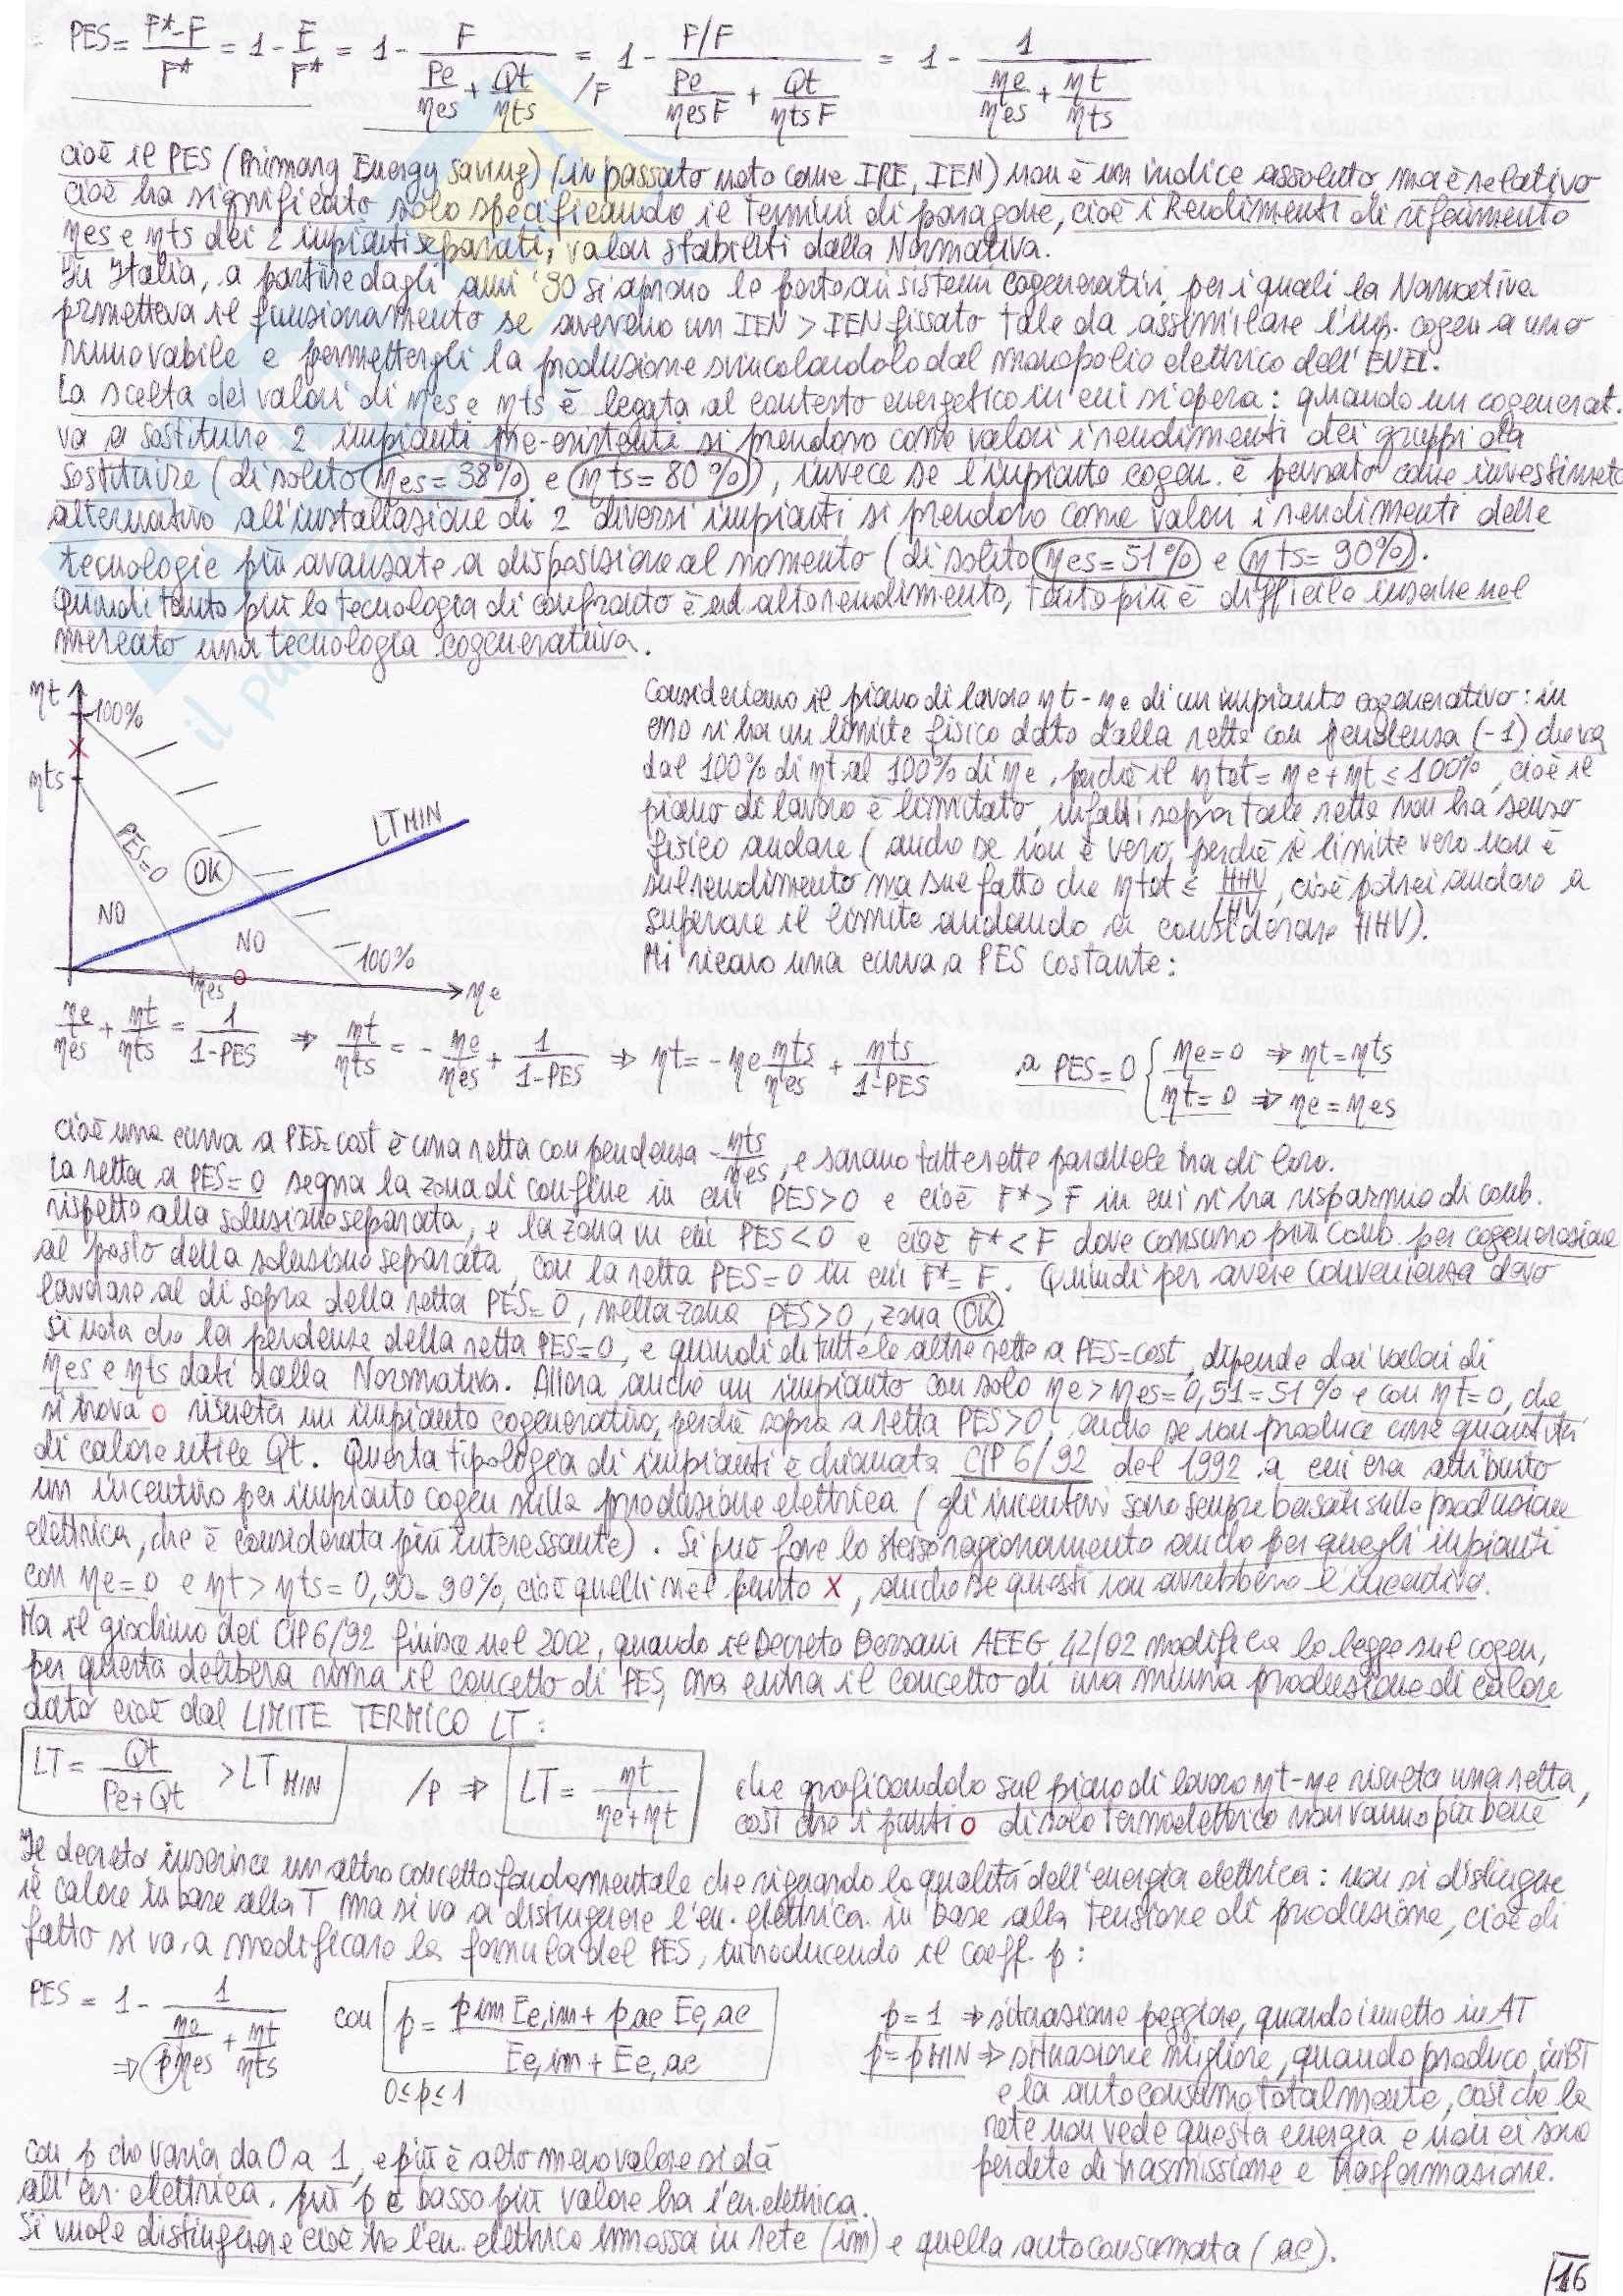 PES = F*-F / F* = 1 - F/F* = 1 - F / (Pe/ηes + Qt/ηts) /F = 1 - F/F / (Pe/ηesF + Qt/ηtsF) = 1 - 1 / (ηe/ηes + ηt/ηts)
cioè il PES (Primary Energy Saving) (in passato noto come IRE, IEN) non è un indice assoluto, ma è relativo
cioè ha significato solo specificando il termini di paragone, cioè i Rendimenti di riferimento
ηes e ηts dei 2 impianti separati, valori stabiliti dalla Normativa.
In Italia, a partire dagli anni '90 si aprono le porte ai sistemi cogenerativi, per i quali la Normativa
prmetteva il funzionamento se avevano un IEN > IEN fissato tale da assimilare l'imp. cogen a uno
rinnovabile e permettergli la produzione svincolandolo dal monopolio elettrico dell'ENEL.
La scelta dei valori di ηes e ηts è legata al contesto energetico in cui si opera: quando un cogenerat.
va a sostituire 2 impianti pre-esistenti si prendono come valori i rendimenti dei gruppi da
sostituire (di solito ηes = 38% e ηts = 80%), invece se l'impianto cogen. è pensato come investimento
alternativo all'installazione di 2 diversi impianti si prendono come valori i rendimenti delle
tecnologie più avanzate a disposizione al momento (di solito ηes = 51% e ηts = 90%).
Quindi tanto più la tecnologia di confronto è ad alto rendimento, tanto più è difficile inserire nel
mercato una tecnologia cogenerativa.
ηt
100%
ηts
PES=0
OK
LT MIN
NO
NO
100%
ηes
ηe
Consideriamo il piano di lavoro ηt-ηe di un impianto cogenerativo: in
esso si ha un limite fisico dato dalla retta con pendenza (-1) che va
dal 100% di ηt al 100% di ηe, perchè il ηtot = ηe+ηt ≤ 100%, cioè il
piano di lavoro è limitato, infatti sopra tale retta non ha senso
fisico andare (anche se non è vero, perchè il limite vero non è
sul rendimento ma sul fatto che ηtot ≤ HHV/LHV, cioè potrei andare a
superare il limite andando a considerare HHV).
Mi ricavo una curva a PES costante:
ηe/ηes + ηt/ηts = 1/(1-PES) ⇒ ηt/ηts = - ηe/ηes + 1/(1-PES) ⇒ ηt = - ηe ηts/ηes + ηts/(1-PES) a PES=0 { ηe=0 ⇒ ηt=ηts
ηt=0 ⇒ ηe=ηes
cioè una curva a PES=cost è una retta con pendenza -ηts/ηes, e saranno tutte rette parallele tra di loro.
La retta a PES=0 segna la zona di confine in cui PES>0 e cioè F*>F in cui si ha risparmio di comb.
rispetto alla soluzione separata, e la zona in cui PES<0 e cioè F*<F dove consumo più comb. per cogenerazione
al posto della soluzione separata, con la retta PES=0 in cui F*=F. Quindi per avere convenienza devo
lavorare al di sopra della retta PES=0, nella zona PES>0, zona OK
Si nota che la pendenza della retta PES=0, e quindi di tutte le altre rette a PES=cost, dipende dai valori di
ηes e ηts dati dalla Normativa. Allora anche un impianto con solo ηe>ηes=0,51=51% e con ηt=0, che
si trova o risulta un impianto cogenerativo, perchè sopra a retta PES>0, anche se non produce una quantità
di calore utile Qt. Questa tipologia di impianti è chiamata CIP 6/92 del 1992 a cui era attribuito
un incentivo per impianto cogen sulla produzione elettrica (gli incentivi sono sempre basati sulla produzione
elettrica, che è considerata più interessante). Si può fare lo stesso ragionamento anche per quegli impianti
con ηe=0 e ηt>ηts=0,90=90%, cioè quelli nel punto x, anche se questi non avrebbero l'incentivo.
Ma il giochino dei CIP6/92 finisce nel 2002, quando il Decreto Bersani AEEG 42/02 modifica la legge sul cogen,
per questa delibera rima il concetto di PES, ma entra il concetto di una minima produzione di calore
dato cioè dal LIMITE TERMICO LT:
LT = Qt/(Pe+Qt) > LT MIN /p ⇒ LT = ηt/(ηe+ηt) che graficandolo sul piano di lavoro ηt-ηe risulta una retta,
così che i punti o di solo termoelettrico non vanno più bene
Il decreto inserisce un altro concetto fondamentale che riguarda la qualità dell'energia elettrica: non si distingue
il calore in base alla T ma si va a distinguere l'en. elettrica in base alla tensione di produzione, cioè di
fatto si va a modificare la formula del PES, introducendo il coeff. p:
PES = 1 - 1 / (ηe/pηes + ηt/ηts) con p = (pim Ee,im + pac Ee,ac) / (Ee,im + Ee,ac)
0≤p≤1
p=1 ⇒ situazione peggiore, quando immetto in AT
p=pMIN ⇒ situazione migliore, quando produco in BT
e la autoconsumo totalmente, così che la
rete non vede questa energia e non ci sono
perdite di trasmissione e trasformazione.
con p che varia da 0 a 1, e più è alto meno valore si dà
all'en. elettrica, più p è basso più valore ha l'en. elettrica.
Si vuole distinguere cioè tra l'en. elettrica immessa in rete (im) e quella autoconsumata (ac).
16